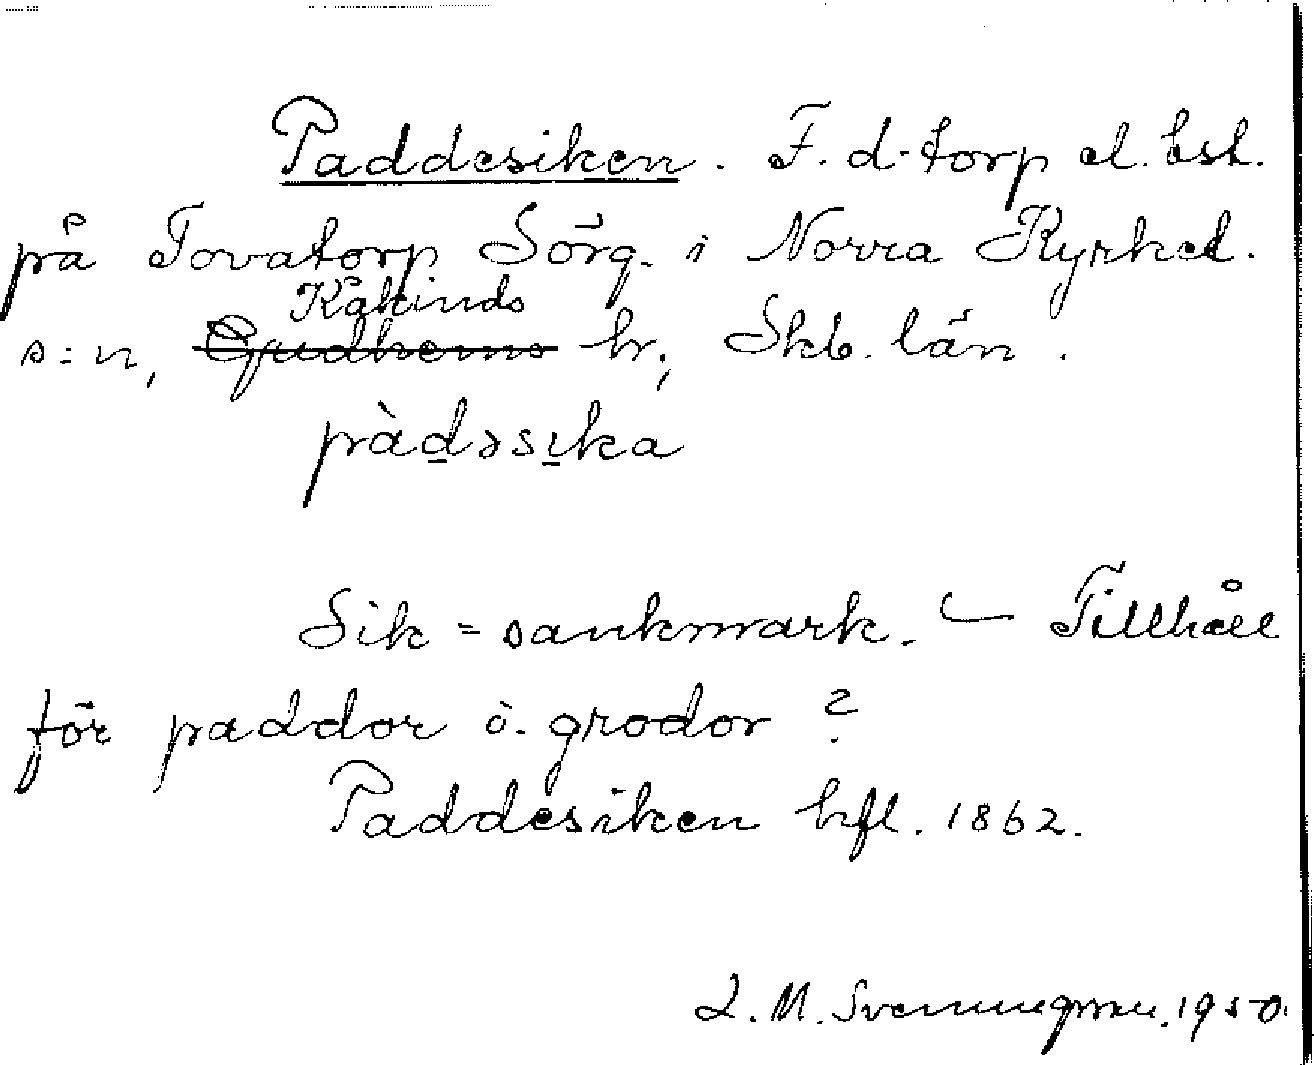 Paddesiken. F.d. torp el. bst.
på Tovatorp Sörg. i Norra Kyrket.
Kåkinds
s:n, Gudhems hr, Skb. län.
pàdəsıka
Sik = sankmark. — Tillhåll
för paddor o. grodor?
Paddesiken hfl. 1862.
L. M. Svenungsson. 1950.